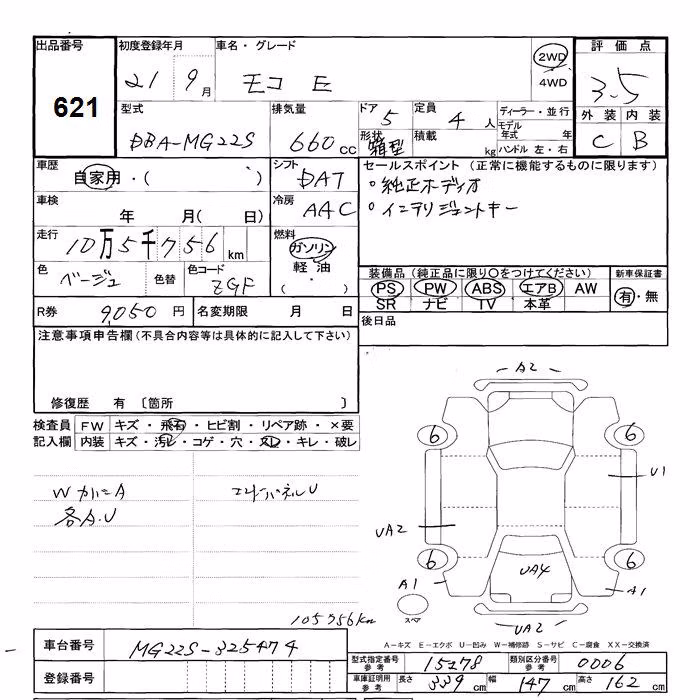 出品番号 初度登録年月 車名・グレード 評価点
621 21 9月 モコ E 2WD 4WD 3.5
外装 内装
C B
型式 排気量 ドア 定員 ディーラー・並行
DBA-MG22S 660cc 5 4人 モデル年式 年
形状 箱型 積載 kg ハンドル 左・右
車歴 自家用・( ) シフト DAT セールスポイント (正常に機能するものに限ります)
。純正オーディオ
車検 年 月( 日) 冷房 AAC 。インテリジェントキー
走行 10万5千756km 燃料 ガソリン
軽油
( ・ )
色 ベージュ 色替 色コード ZGF
装備品 (純正品に限り○をつけてください) 新車保証書
PS PW ABS エアB AW 有・無
SR ナビ TV 本革
R券 9,050円 名変期限 月 日 後日品
注意事項申告欄(不具合内容等は具体的に記入して下さい)
修復歴 有 〔箇所 〕
検査員 FW キズ・飛石・ヒビ割・リペア跡・×要
記入欄 内装 キズ・汚レ・コゲ・穴・スレ・キレ・破レ
A2
6 6
U1
UA2
6 6
UA4
A1 A1
スペア
UA2
WカルニA
各A.U
エンドパネルU
105756km
A-キズ E-エクボ U-凹み W-補修跡 S-サビ C-腐食 XX-交換済
車台番号 MG22S-325474
登録番号
型式指定番号 参考 15278 類別区分番号 参考 0006
車庫証明用 参考 長さ 339cm 幅 147cm 高さ 162cm